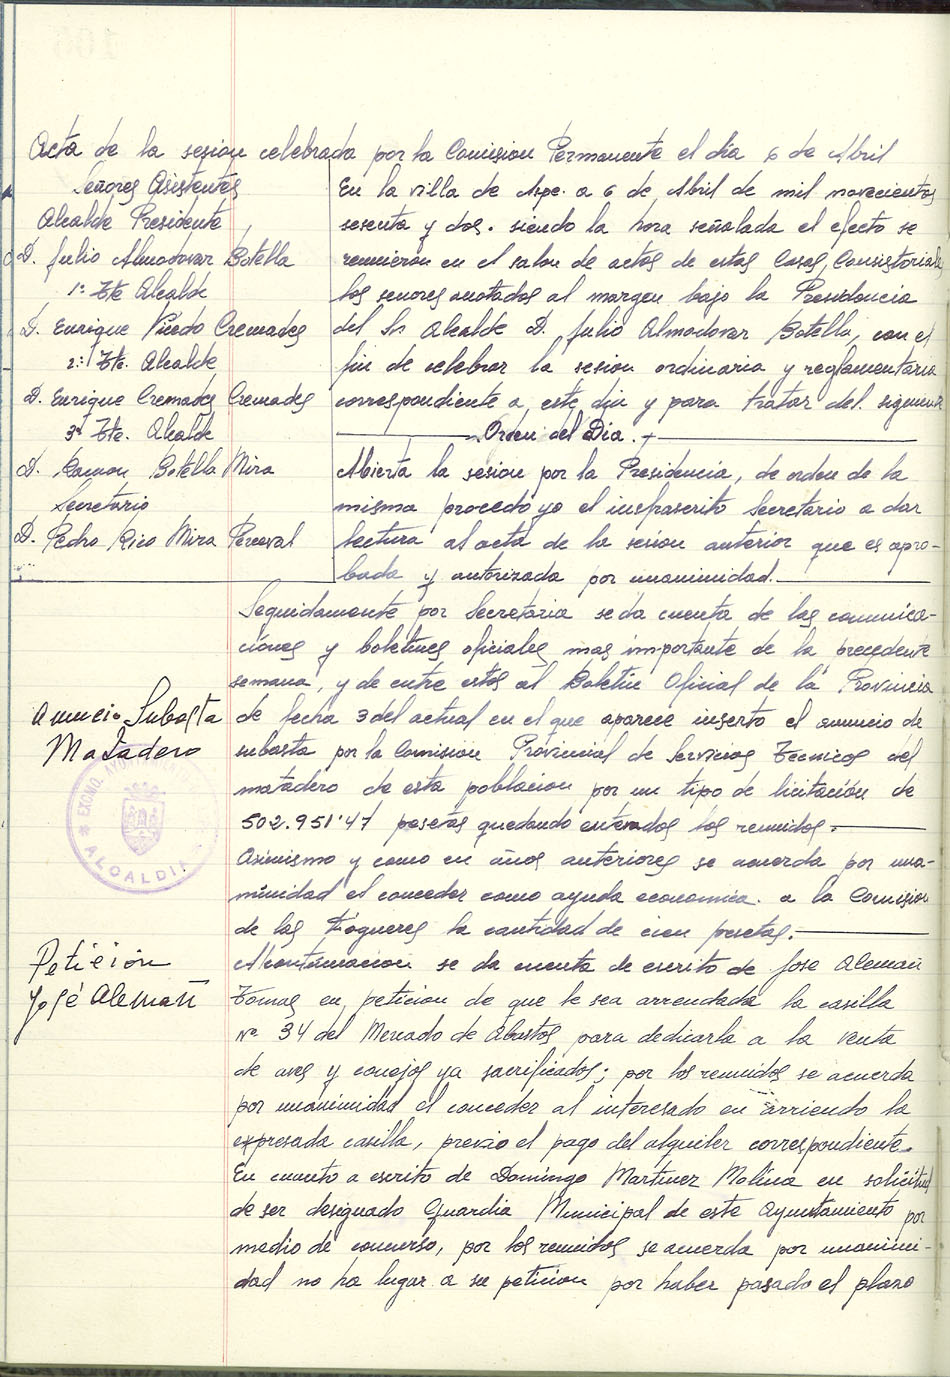 Acta de la sesión celebrada por la Comision Permanente el día 6 de Abril
Señores Asistentes
Alcalde Presidente
D. Julio Almodovar Botella
1º Tte Alcalde
D. Enrique Pùedo Cremades
2º Tte. Alcalde
D. Enrique Cremades Cremades
3º Tte. Alcalde
D. Ramon Botella Mira
Secretario
D. Pedro Rico Mira Perceval
En la villa de Aspe. a 6 de Abril de mil novecientos
sesenta y dos. siendo la hora señalada el efecto se
reunieron en el salon de actos de estas Casas Consistoriales
los señores anotados al margen bajo la Presidencia
del Sr Alcalde D. Julio Almodovar Botella, con el
fin de celebrar la sesion ordinaria y reglamentaria
correspondiente a este dia y para tratar del siguiente
Orden del Día.
Abierta la sesion por la Presidencia, de orden de la
misma procedo yo el infrascrito Secretario a dar
lectura al acta de la sesion anterior que es apro-
bada y autorizada por unanimidad.
Seguidamente por Secretaria se da cuenta de las comunica-
ciones y boletines oficiales mas importante de la precedente
semana, y de entre estos al Boletin Oficial de la Provincia
de fecha 3 del actual en el que aparece inserto el anuncio de
subasta por la Comision Provincial de Servicios Tecnicos del
matadero de esta poblacion por un tipo de licitación de
502.951'47 pesetas quedando enterados los reunidos.
Anuncio Subasta
Matadero
EXCMO. AYUNTAMIENTO
ALCALDIA
Asimismo y como en años anteriores se acuerda por una-
nimidad el conceder como ayuda economica. a la Comision
de las Fogueres la cantidad de cien pesetas.
Petición
José Alemañ
A continuacion se da cuenta de escrito de Jose Alemañ
Tomas en peticion de que le sea arrendada la casilla
Nº 34 del Mercado de Abastos para dedicarla a la venta
de aves y conejos ya sacrificados; por los reunidos se acuerda
por unanimidad el conceder al interesado en arriendo la
expresada casilla, previo el pago del alquiler correspondiente.
En cuanto a escrito de Domingo Martinez Molina en solicitud
de ser designado Guardia Municipal de este Ayuntamiento por
medio de concurso, por los reunidos se acuerda por unanimi-
dad no ha lugar a su peticion por haber pasado el plazo